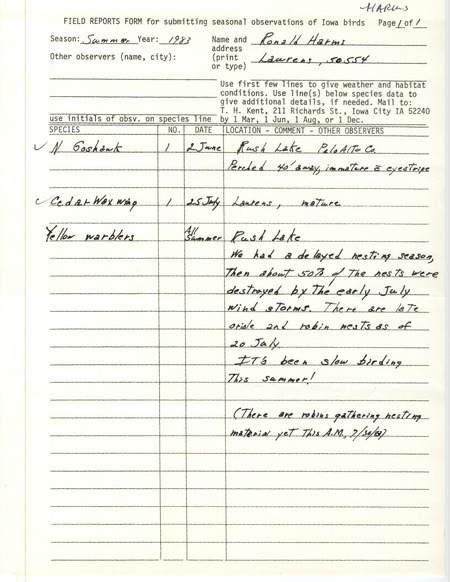 HARMS
FIELD REPORTS FORM for submitting seasonal observations of Iowa birds Page 1 of 1
Season: Summer Year: 1983 Name and Ronald Harms
address
Other observers (name, city): (print Laurens, 50554
or type)
Use first few lines to give weather and habitat
conditions. Use line(s) below species data to
give additional details, if needed. Mail to:
T. H. Kent, 211 Richards St., Iowa City IA 52240
use initials of obsv. on species line by 1 Mar, 1 Jun, 1 Aug, or 1 Dec.
SPECIES NO. DATE LOCATION - COMMENT - OTHER OBSERVERS
✓ N Goshawk 1 2 June Rush Lake Palo Alto Co.
Perched 40' away, immature c̄ eyestripe
✓ Cedar Waxwing 1 25 July Laurens, mature
Yellow warblers All Summer Rush Lake
We had a delayed nesting season,
Then about 50% of The nests were
destroyed by The early July
wind storms. There are late
oriole and robin nests as of
20 July
ITS been slow birding
This summer!
(There are robins gathering nesting
material yet This A.M.,